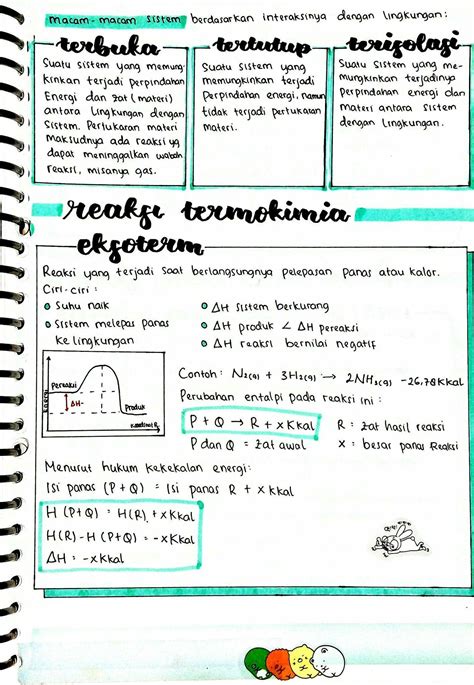 macam-macam sistem berdasarkan interaksinya dengan lingkungan:
terbuka
Suatu sistem yang memung-
kinkan terjadi perpindahan
Energi dan zat (materi)
antara lingkungan dengan
sistem. Pertukaran materi
maksudnya ada reaksi yg
dapat meninggalkan wadah
reaksi, misanya gas.
tertutup
Suatu sistem yang
memungkinkan terjadi
Perpindahan energi, namun
tidak terjadi pertukaran
materi.
terisolasi
Suatu sistem yang me-
mungkinkan terjadinya
perpindahan energi dan
materi antara sistem
dengan lingkungan.
reaksi termokimia
eksoterm
Reaksi yang terjadi saat berlangsungnya pelepasan panas atau kalor.
Ciri-ciri:
Suhu naik
Sistem melepas panas
ke lingkungan
ΔH sistem berkurang
ΔH produk < ΔH pereaksi
ΔH reaksi bernilai negatif
Energi
Pereaksi
ΔH-
Produk
Contoh: N₂(g) + 3H₂(g) → 2NH₃(g) -26,78 Kkal
Perubahan entalpi pada reaksi ini:
P + Q → R + x Kkal
R : zat hasil reaksi
P dan Q = zat awal
x : besar panas Reaksi
Menurut hukum kekekalan energi:
Isi panas (P + Q) = Isi panas R + x Kkal
H (P+Q) = H(R) + x Kkal
H(R) - H (P+Q) = -x Kkal
ΔH = -x Kkal